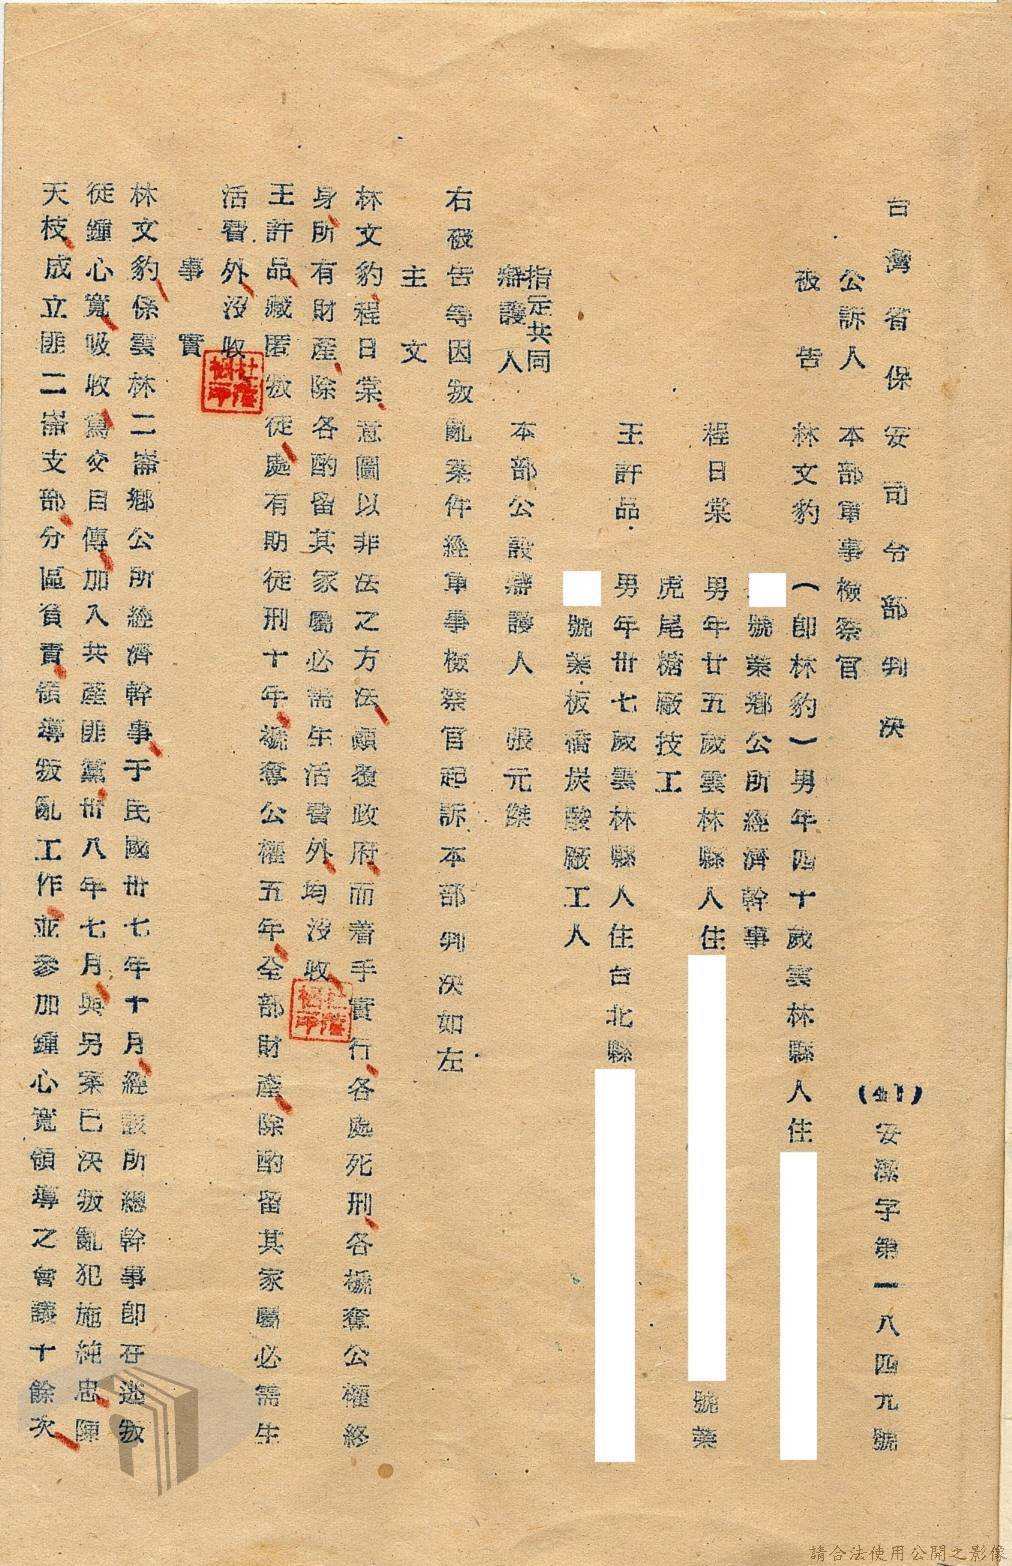 台灣省保安司令部判決
(41)安潔字第一八四九號
公訴人 本部軍事檢察官
被告 林文豹 (即林豹)男年四十歲雲林縣人住
號業鄉公所經濟幹事
程日棠 男年廿五歲雲林縣人住 號業
虎尾糖廠技工
王許品 男年卅七歲雲林縣人住台北縣
號業板橋炭酸廠工人
指定共同
辯護人 本部公設辯護人 張元傑
右被告等因叛亂案件經軍事檢察官起訴本部判決如左
主文
林文豹程日棠意圖以非法之方法顛覆政府而着手實行各處死刑各褫奪公權終
身所有財產除各酌留其家屬必需生活費外均沒收
王許品藏匿叛徒處有期徒刑十年褫奪公權五年全部財產除酌留其家屬必需生
活費外沒收
事實
林文豹係雲林二崙鄉公所經濟幹事于民國卅七年十月經該所總幹事即在逃叛
徒鍾心寬吸收寫交自傳加入共產匪黨卅八年七月與另案已決叛亂犯施純忠陳
天枝成立匪二崙支部分區負責領導叛亂工作並參加鍾心寬領導之會議十餘次
請合法使用公開之影像